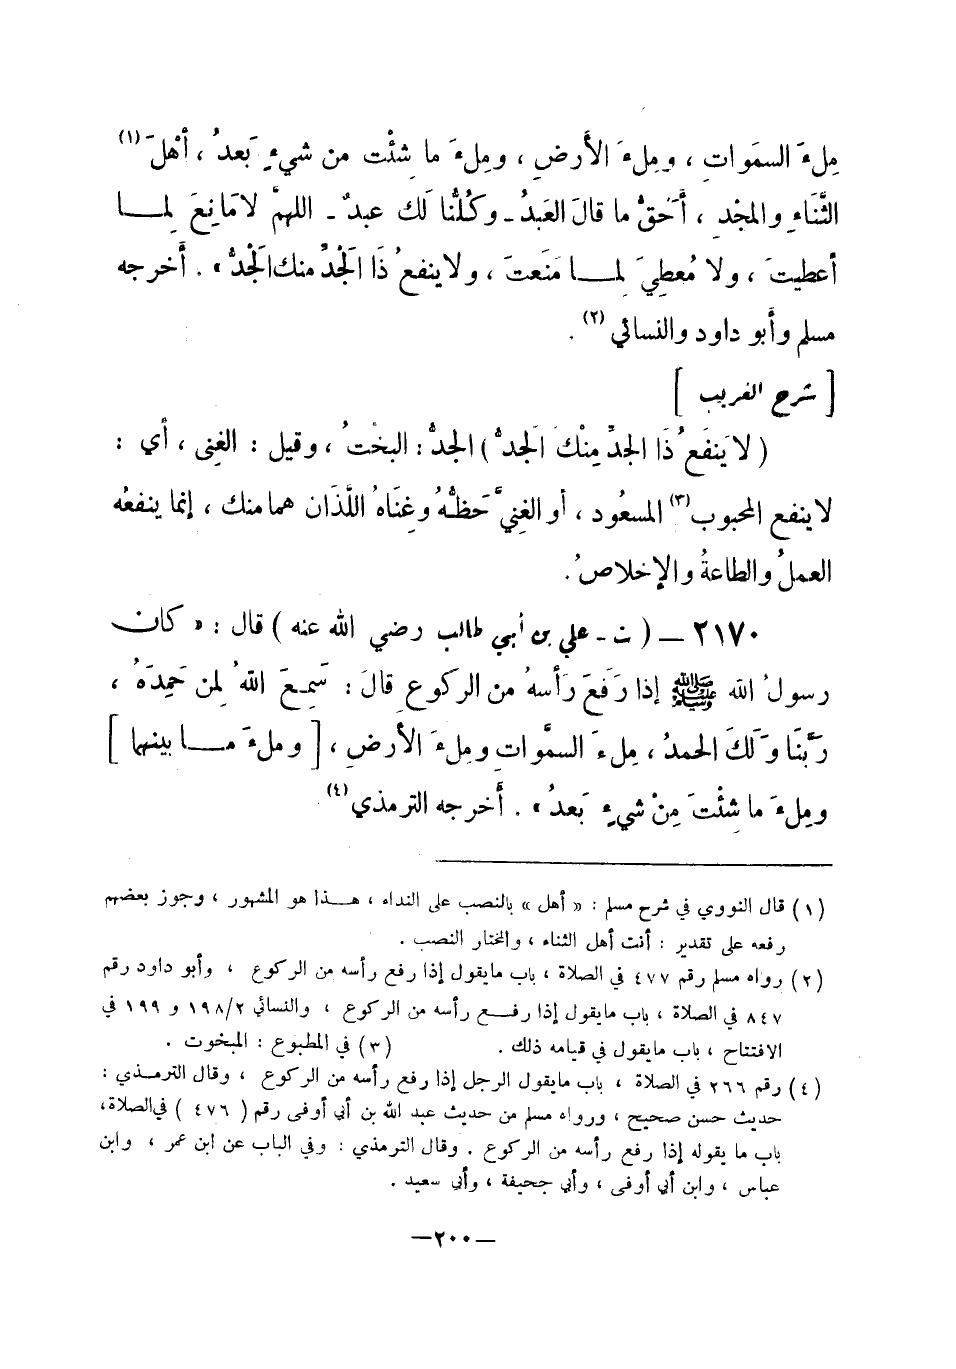 مِلءَ السمَواتِ ، ومِلءَ الأَرضِ ، ومِلءَ ما شِئْتَ من شيءٍ بَعدُ ، أهْلَ (١)
الثَّنَاءِ والمجْدِ ، أَحَقُّ ما قالَ العَبدُ ـ وكُلُّنا لَك عبدٌ ـ اللهمَّ لا مَانِعَ لِمـا
أعطيتَ ، ولا مُعطِيَ لِمـا مَنَعتَ ، ولا ينفعُ ذَا الجَدِّ منك الجَدُّ » . أَخرجه
مسلم وأَبو داود والنسائي (٢) .
[ شرح الغريب ]
( لا يَنفَعُ ذَا الجدِّ مِنْكَ الجَدُّ ) الجدُّ : البخْتُ ، وقيل : الغِنى ، أي :
لا ينفع المحبوب (٣) المسعُود ، أو الغنيَّ حَظُّهُ وغِنَاهُ اللَّذَان هما منك ، إنما ينفعُه
العملُ والطاعةُ والإخلاصُ .
٢١٧٠ ـ ( ت ـ علي بن أبي طالب رضي الله عنه ) قال : « كان
رسولُ الله ﷺ إذا رَفَعَ رَأسهُ من الركوع قالَ : سَمِعَ اللهُ لِمن حَمِدَهُ ،
رَبَّنَا وَلَكَ الحمدُ ، مِلءَ السمَّواتِ ومِلءَ الأَرضِ ، [ وملءَ مـا بينهما ]
ومِلءَ ما شِئْتَ مِنْ شيءٍ بَعدُ » . أَخرجه الترمذي (٤)
(١) قال النووي في شرح مسلم : « أهل » بالنصب على النداء ، هـذا هو المشهور ، وجوز بعضهم
رفعه على تقدير : أنت أهل الثناء ، والمختار النصب .
(٢) رواه مسلم رقم ٤٧٧ في الصلاة ، باب ما يقول إذا رفع رأسه من الركوع ، وأبو داود رقم
٨٤٧ في الصلاة ، باب ما يقول إذا رفـع رأسه من الركوع ، والنسائي ١٩٨/٢ و ١٩٩ في
الافتتاح ، باب ما يقول في قيامه ذلك . (٣) في المطبوع : المبخوت .
(٤) رقم ٢٦٦ في الصلاة ، باب ما يقول الرجل إذا رفع رأسه من الركوع ، وقال الترمـذي :
حديث حسن صحيح ، ورواه مسلم من حديث عبد الله بن أبي أوفى رقم ( ٤٧٦ ) في الصلاة،
باب ما يقوله إذا رفع رأسه من الركوع . وقال الترمذي : وفي الباب عن ابن عمر ، وابن
عباس ، وابن أبي أوفى ، وأبي جحيفة ، وأبي سعيد .
—٢٠٠—